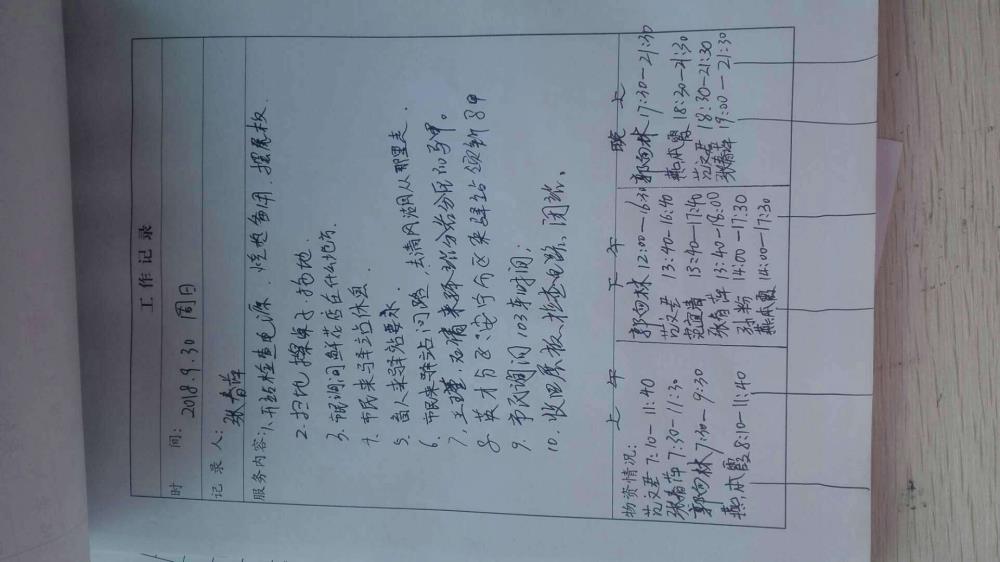 工作记录
时 间: 2018.9.30 周日
记录人: 张春萍
服务内容:1.开站检查电源.烧水备用.摆展板.
2.扫地擦桌子拖地
3.市民询问鲜花店在什么地方.
4.市民来驿站休息
5.盲人来驿站要水.
6.市民来驿站问路,去清风湖从那里走.
7.来驿站
8.英才 来驿站领
9.市民询问103车时间;
10.收回展板,检查电路、闭站.
物资情况: 上午 下午 晚上
范文君 7:10-11:40
张春萍 7:30-11:30
郭向林 7:30-9:30
燕本霞 8:10-11:40
郭向林 12:00-16:30
范文君 13:40-16:40
范宜清 13:40-17:40
张春萍 13:40-18:00
孙粉 14:00-17:30
燕本霞 14:00-17:30
郭向林 17:30-21:30
燕本霞 18:30-21:30
范文君 18:30-21:30
张春萍 19:00-21:30